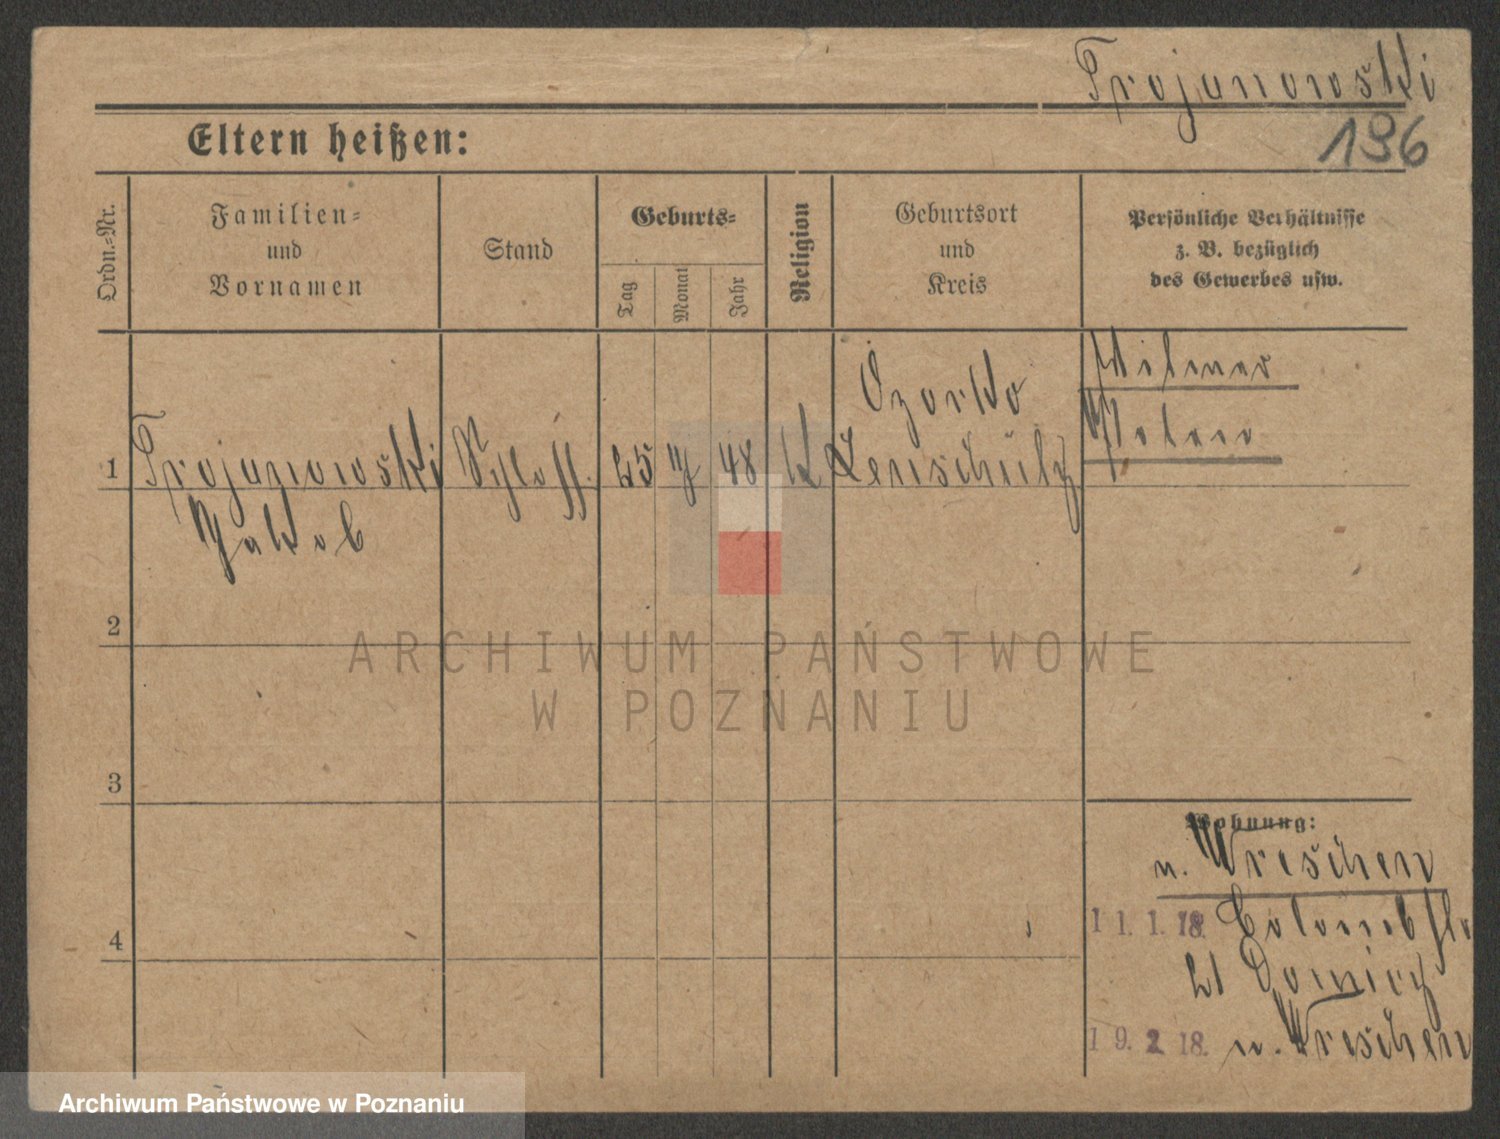 Trojanowski
196
Eltern heißen:
Ordn.-Nr.
Familien-
und
Vornamen
Stand
Geburts-
Tag
Monat
Jahr
Religion
Geburtsort
und
Kreis
Persönliche Verhältnisse
z. B. bezüglich
des Gewerbes usw.
Witwer
Ozorko
Polen
1
Trojanowski
Schloss.
25
7
48
K
Lenschütz
Jakob
2
ARCHIWUM PAŃSTWOWE
W POZNANIU
3
Wohnung:
n. Wreschen
11. 1. 18.
21
4
19. 2. 18. n. Wreschen
Archiwum Państwowe w Poznaniu